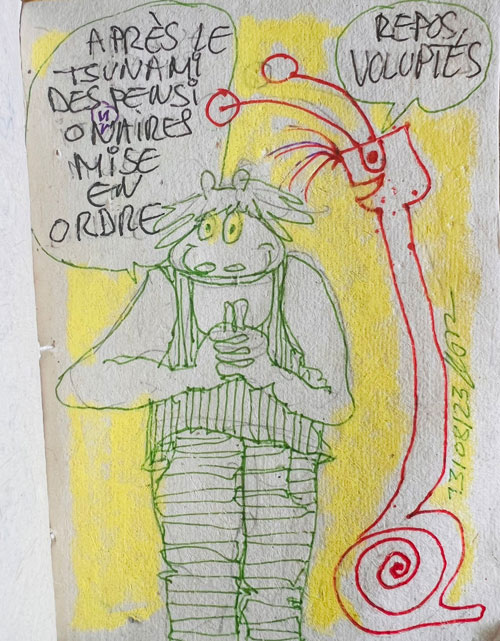 APRÈS LE
TSUNAMI
DES PENSI
ONNAIRES
MISE
EN
ORDRE
REPOS,
VOLUPTÉS
13/08/23